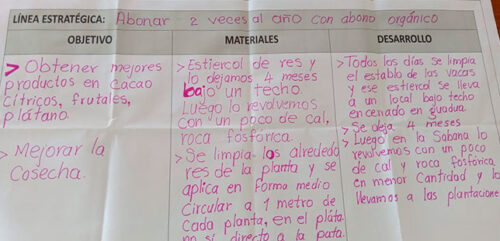 LÍNEA ESTRATÉGICA: Abonar 2 veces al año con abono orgánico
OBJETIVO
> Obtener mejores
productos en cacao
Cítricos, frutales,
plátano.
> Mejorar la
Cosecha.
MATERIALES
> Estiercol de res y
lo dejamos 4 meses
bajo un techo
Luego lo revolvemos
con un poco de cal,
roca fosforica
> Se limpia los alrrededo
res de la planta y se
aplica en forma medio
Circular a 1 metro de
Cada planta, en el pláta
no si directo a la pata.
DESARROLLO
> Todos los dias se limpia
el establo de las vacas
y ese estiercol se lleva
a un local bajo techo
encerrado en guadua
> Se deja 4 meses
> Luego en la Sabana lo
revolvemos con un poco
de cal y roca fosforica,
en menor Cantidad y lo
llevamos a las plantacione